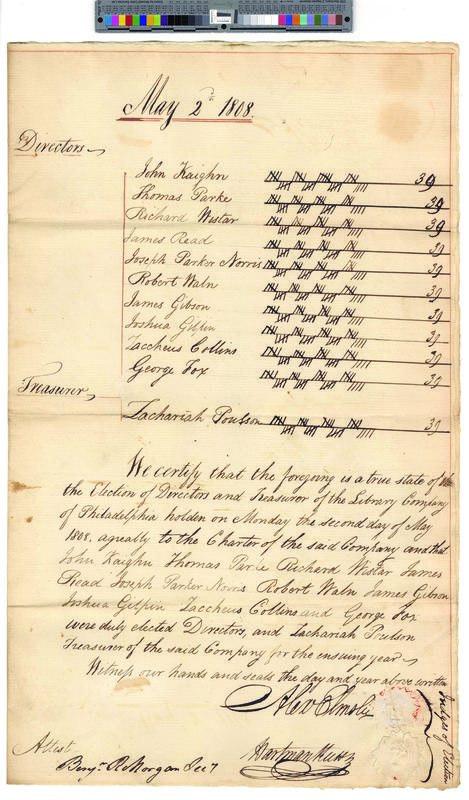 May 2d 1808.
Directors
John Kaighn 39
Thomas Parke 39
Richard Wistar 39
James Read 39
Joseph Parker Norris 39
Robert Waln 39
James Gibson 39
Joshua Gilpin 39
Zaccheus Collins 39
George Fox 39
Treasurer
Zachariah Poulson 39
We certify that the foregoing is a true state of
the Election of Directors and Treasurer of the Library Company
of Philadelphia holden on Monday the second day of May
1808. agreably to the Charter of the said Company and that
John Kaighn Thomas Parke Richard Wistar James
Read Joseph Parker Norris Robert Waln James Gibson
Joshua Gilpin Zaccheus Collins and George Fox
were duly elected Directors, and Zachariah Poulson
Treasurer of the said Company for the ensuing year
Witness our hands and seals the day and year above written
Alex Elmsly
Judges of Election
Attest
Hartman Kuhn
Benjn R Morgan Secy